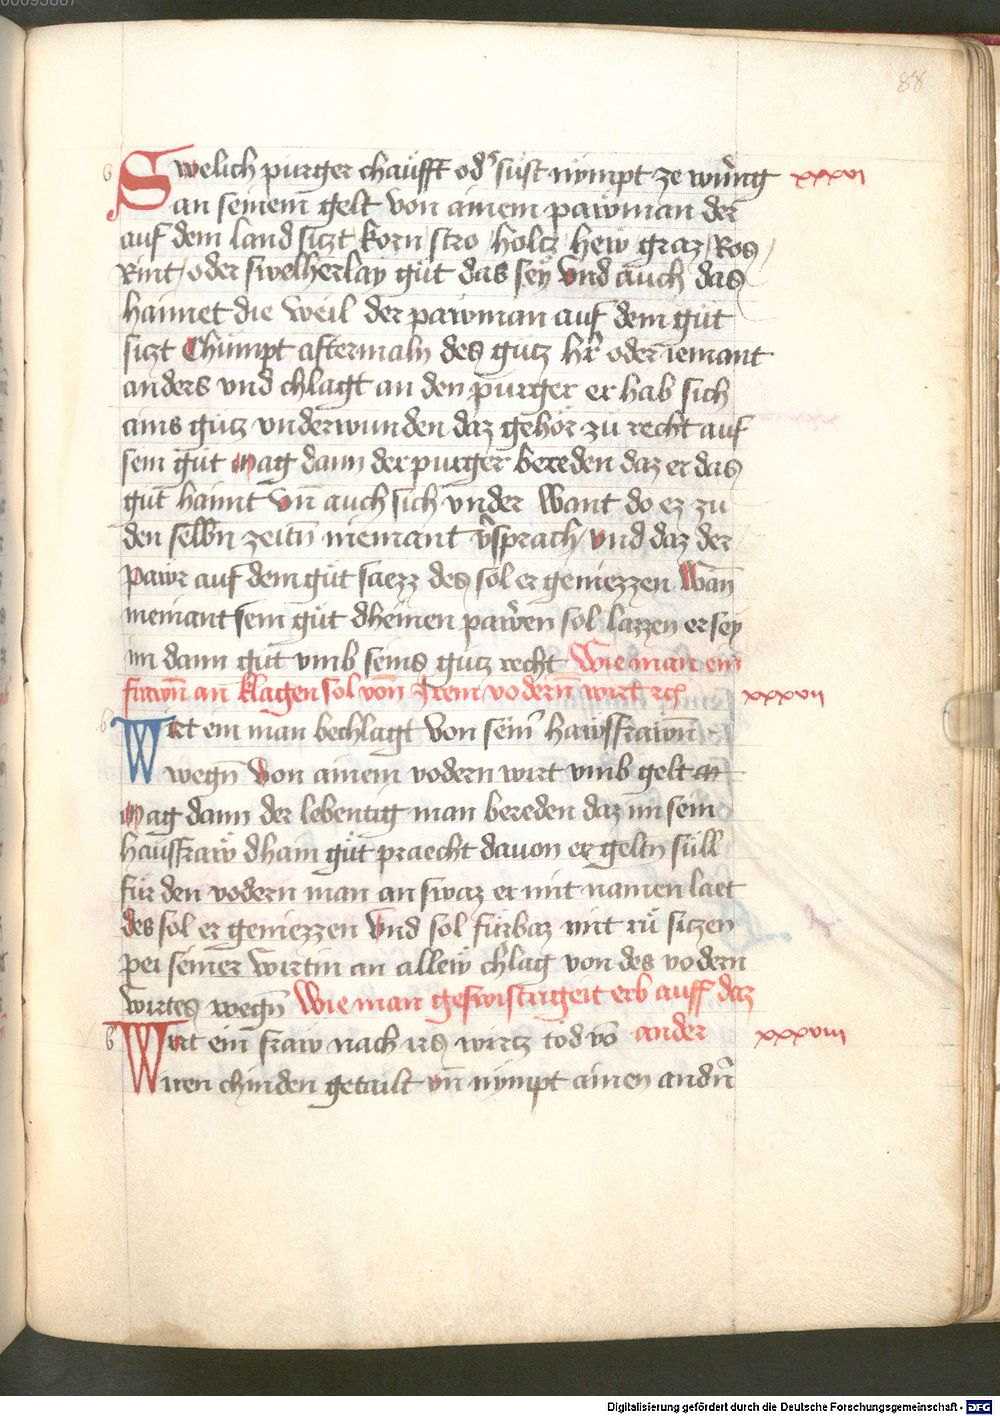 00093867
88
Swelich purger chaüfft od' süst nÿmpt ze wering xxxvi
an seinem gelt von ainem paẃman der
auf dem land siczt korn / stro / holcz / hew / graz / Ros /
Rint / oder swelherlay gůt das seÿ vnd auch das
haimet die weil der pawman auf dem gůt
siczt Chümpt aftermaln des gutz hr̄ oder iemant
anders vnd chlagt an den purger er hab sich
ains gutz vnderwunden daz gehör zu recht auf
sein gůt Mag dann der purger bereden daz er das
gůt haimt vn̄ auch sich vnder want do ez zu
den selbn̄ zeitn̄ niemant v'sprach / vnd daz der
pawr auf dem gůt saezz des sol er geniezzen Wan̄
niemant sein gůt dheinen paẃren sol lazzen er sey
im dann gůt vmb seins gutz recht Wie man ein
frawn̄ an klagen sol von irem vodern̄ wirt rch xxxvii
Wirt ein man bechlagt von sein' hawsfrawn̄
wegn̄ von ainem vodern wirt vmb gelt
Mag dann der lebentig man bereden daz im sein
hausfraẃ dhain gůt praecht dauon er geltn süll
für den vodern man an swaz er mit namen laet
des sol er geniezzen vnd sol fürbaz mit rů siczen
pei seiner wirtin an alleẃ chlag von des vodern
wirtes wegn̄ Wie man geswistrigeit erb auff daz
ander
Wirt ein fraw nach irs wirtz tod vō xxxviii
iren chinden getailt vn̄ nympt ainen andn̄
Digitalisierung gefördert durch die Deutsche Forschungsgemeinschaft - DFG